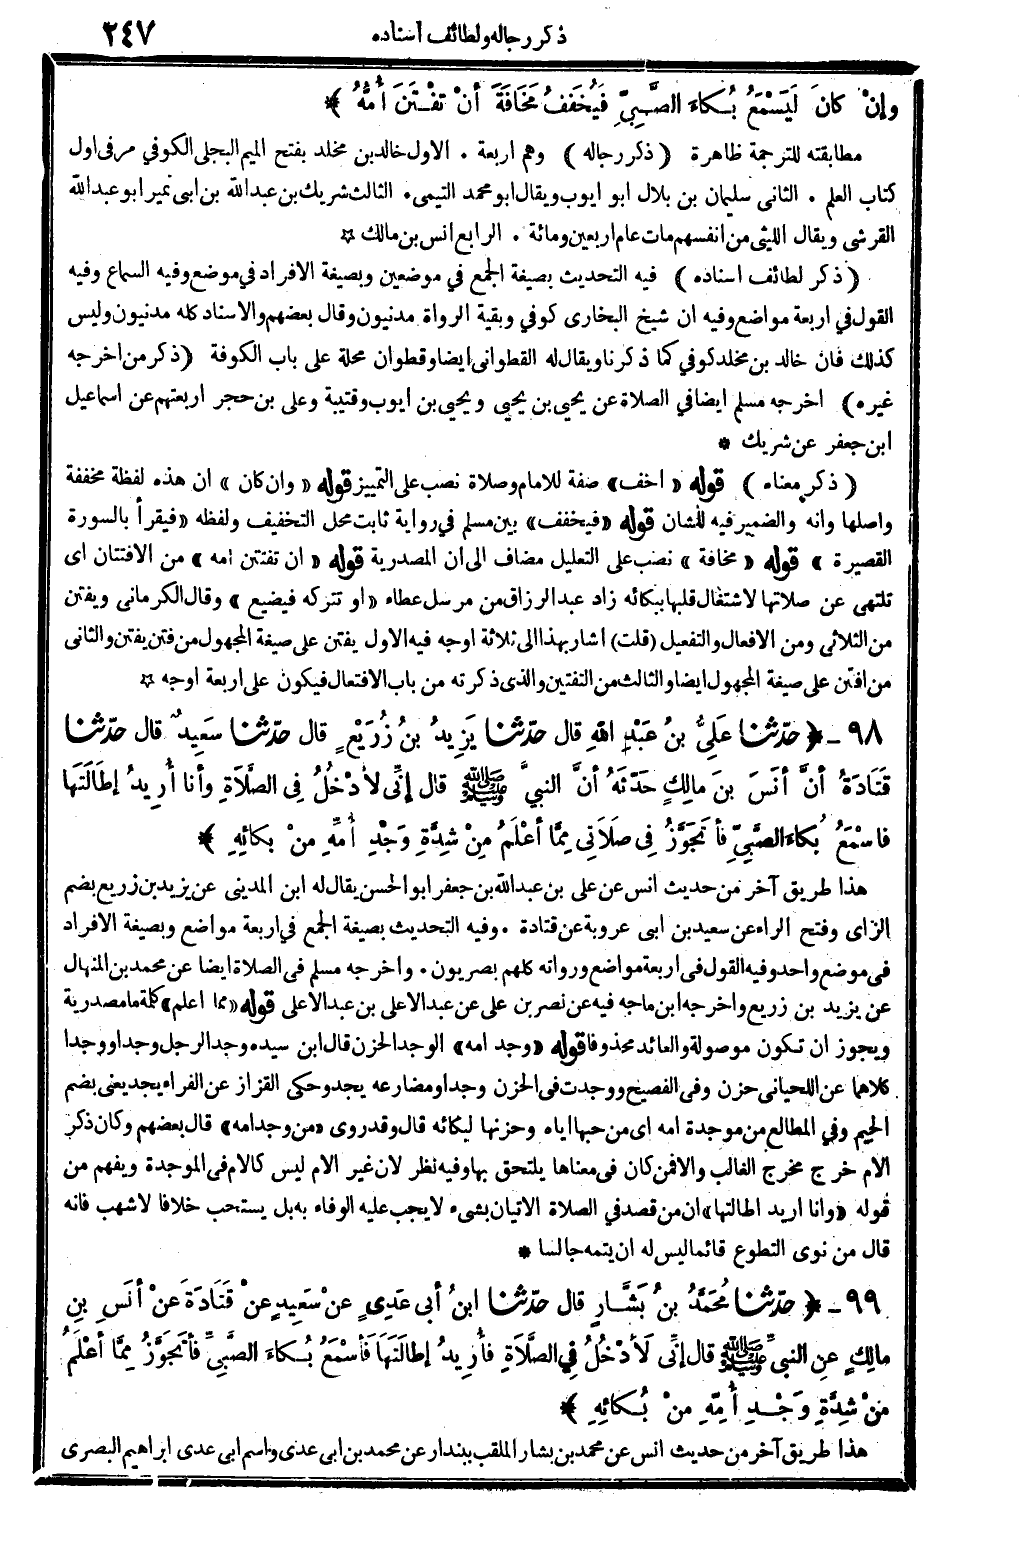 ذكر رجاله ولطائف أسناده ٢٤٧
وإنْ كانَ لَيَسْمَعُ بُكاءَ الصَّبِيِّ فَيُخَفِّفُ مَخَافَةَ أنْ تُفْتَنَ أُمُّهُ ﴾
مطابقته للترجمة ظاهرة ( ذكر رجاله ) وهم اربعة . الاول خالد بن مخلد بفتح الميم البجلى الكوفي مر فى اول
كتاب العلم . الثانى سليمان بن بلال ابو ايوب ويقال ابو محمد التيمى . الثالث شريك بن عبد الله بن ابى نمير ابو عبد الله
القرشى ويقال الليثى من انفسهم مات عام اربعين ومائة . الرابع انس بن مالك ☆
( ذكر لطائف اسناده ) فيه التحديث بصيغة الجمع في موضعين وبصيغة الافراد في موضع وفيه السماع وفيه
القول في اربعة مواضع وفيه ان شيخ البخارى كوفي وبقية الرواة مدنيون وقال بعضهم والاسناد كله مدنيون وليس
كذلك فان خالد بن مخلد كوفي كما ذكرنا ويقال له القطوانى ايضا وقطوان محلة على باب الكوفة (ذكر من اخرجه
غيره) اخرجه مسلم ايضا في الصلاة عن يحيى بن يحيى ويحيى بن ايوب وقتيبة وعلى بن حجر اربعتهم عن اسماعيل
ابن جعفر عن شريك *
( ذكر معناه ) قوله « اخف » صفة للامام وصلاة نصب على التمييز قوله « وان كان » ان هذه لفظة مخففة
واصلها وانه والضمير فيه للشان قوله «فيخفف» بين مسلم في رواية ثابت محل التخفيف ولفظه «فيقرأ بالسورة
القصيرة » قوله « مخافة » نصب على التعليل مضاف الى ان المصدرية قوله « ان تفتتن امه » من الافتتان اى
تلتهى عن صلاتها لاشتغال قلبها ببكائه زاد عبد الرزاق من مرسل عطاء «او تتركه فيضيع » وقال الكرمانى ويفتن
من الثلاثى ومن الافعال والتفعيل (قلت) اشار بهذا الى ثلاثة اوجه فيه الاول يفتن على صيغة المجهول من فتن يفتن والثانى
من افتن على صيغة المجهول ايضا والثالث من التفتين والذى ذكرته من باب الافتعال فيكون على اربعة اوجه ☆
٩٨ - ﴿ حدّثنا عَلِيُّ بنُ عَبْدِ اللهِ قال حدّثنا يَزِيدُ بنُ زُرَيْعٍ قال حدّثنا سَعِيدٌ قال حدّثنا
قَتَادَةُ أنَّ أنَسَ بنَ مالِكٍ حَدَّثَهُ أنَّ النبيَّ ﷺ قال إنِّى لَأدْخُلُ فِى الصَّلَاةِ وأنا أُرِيدُ إطَالَتَهَا
فاسْمَعُ بُكاءَ الصَّبِيِّ فأتَجَوَّزُ فِى صَلَاتِى مِمَّا أعْلَمُ مِنْ شِدَّةِ وَجْدِ أُمِّهِ مِنْ بكائِهِ ﴾
هذا طريق آخر من حديث انس عن على بن عبد الله بن جعفر ابو الحسن يقال له ابن المدينى عن يزيد بن زريع بضم
الزاى وفتح الراء عن سعيد بن ابى عروبة عن قتادة . وفيه التحديث بصيغة الجمع في اربعة مواضع وبصيغة الافراد
فى موضع واحد وفيه القول فى اربعة مواضع ورواته كلهم بصريون . واخرجه مسلم فى الصلاة ايضا عن محمد بن المنهال
عن يزيد بن زريع واخرجه ابن ماجه فيه عن نصر بن على عن عبد الاعلى بن عبد الاعلى قوله «مما اعلم» كلة ما مصدرية
ويجوز ان تكون موصولة والعائد محذوفا قوله «وجد امه» الوجد الحزن قال ابن سيده وجد الرجل وجدا ووجدا
كلاهما عن اللحيانى حزن وفى الفصيح ووجدت فى الحزن وجدا ومضارعه يجد وحكى القزاز عن الفراء يجد يعنى بضم
الجيم وفي المطالع من موجدة امه اى من حبها اياه وحزنها لبكائه قال وقد روى «من وجد امه» قال بعضهم وكان ذكر
الام خرج مخرج الغالب والا فمن كان فى معناها يلتحق بها وفيه نظر لان غير الام ليس كالام فى الموجدة ويفهم من
قوله «وانا اريد اطالتها» ان من قصد في الصلاة الاتيان بشىء لا يجب عليه الوفاء به بل يستحب خلافا لاشهب فانه
قال من نوى التطوع قائما ليس له ان يتمه جالسا *
٩٩ - ﴿ حدّثنا مُحَمَّدُ بنُ بَشَّارٍ قال حدّثنا ابنُ أبى عَدِىٍ عنْ سَعِيدٍ عنْ قَتَادَةَ عنْ أنَسِ بنِ
مالِكٍ عنِ النبيِّ ﷺ قال إنِّى لَأدْخُلُ فِي الصَّلَاةِ فأُرِيدُ إطَالَتَهَا فأسْمَعُ بُكاءَ الصَّبِيِّ فأتَجَوَّزُ مِمَّا أعْلَمُ
مِنْ شِدَّةِ وَجْدِ أُمِّهِ مِنْ بُكائِهِ ﴾
هذا طريق آخر من حديث انس عن محمد بن بشار الملقب ببندار عن محمد بن ابى عدى واسم ابى عدى ابراهيم البصرى